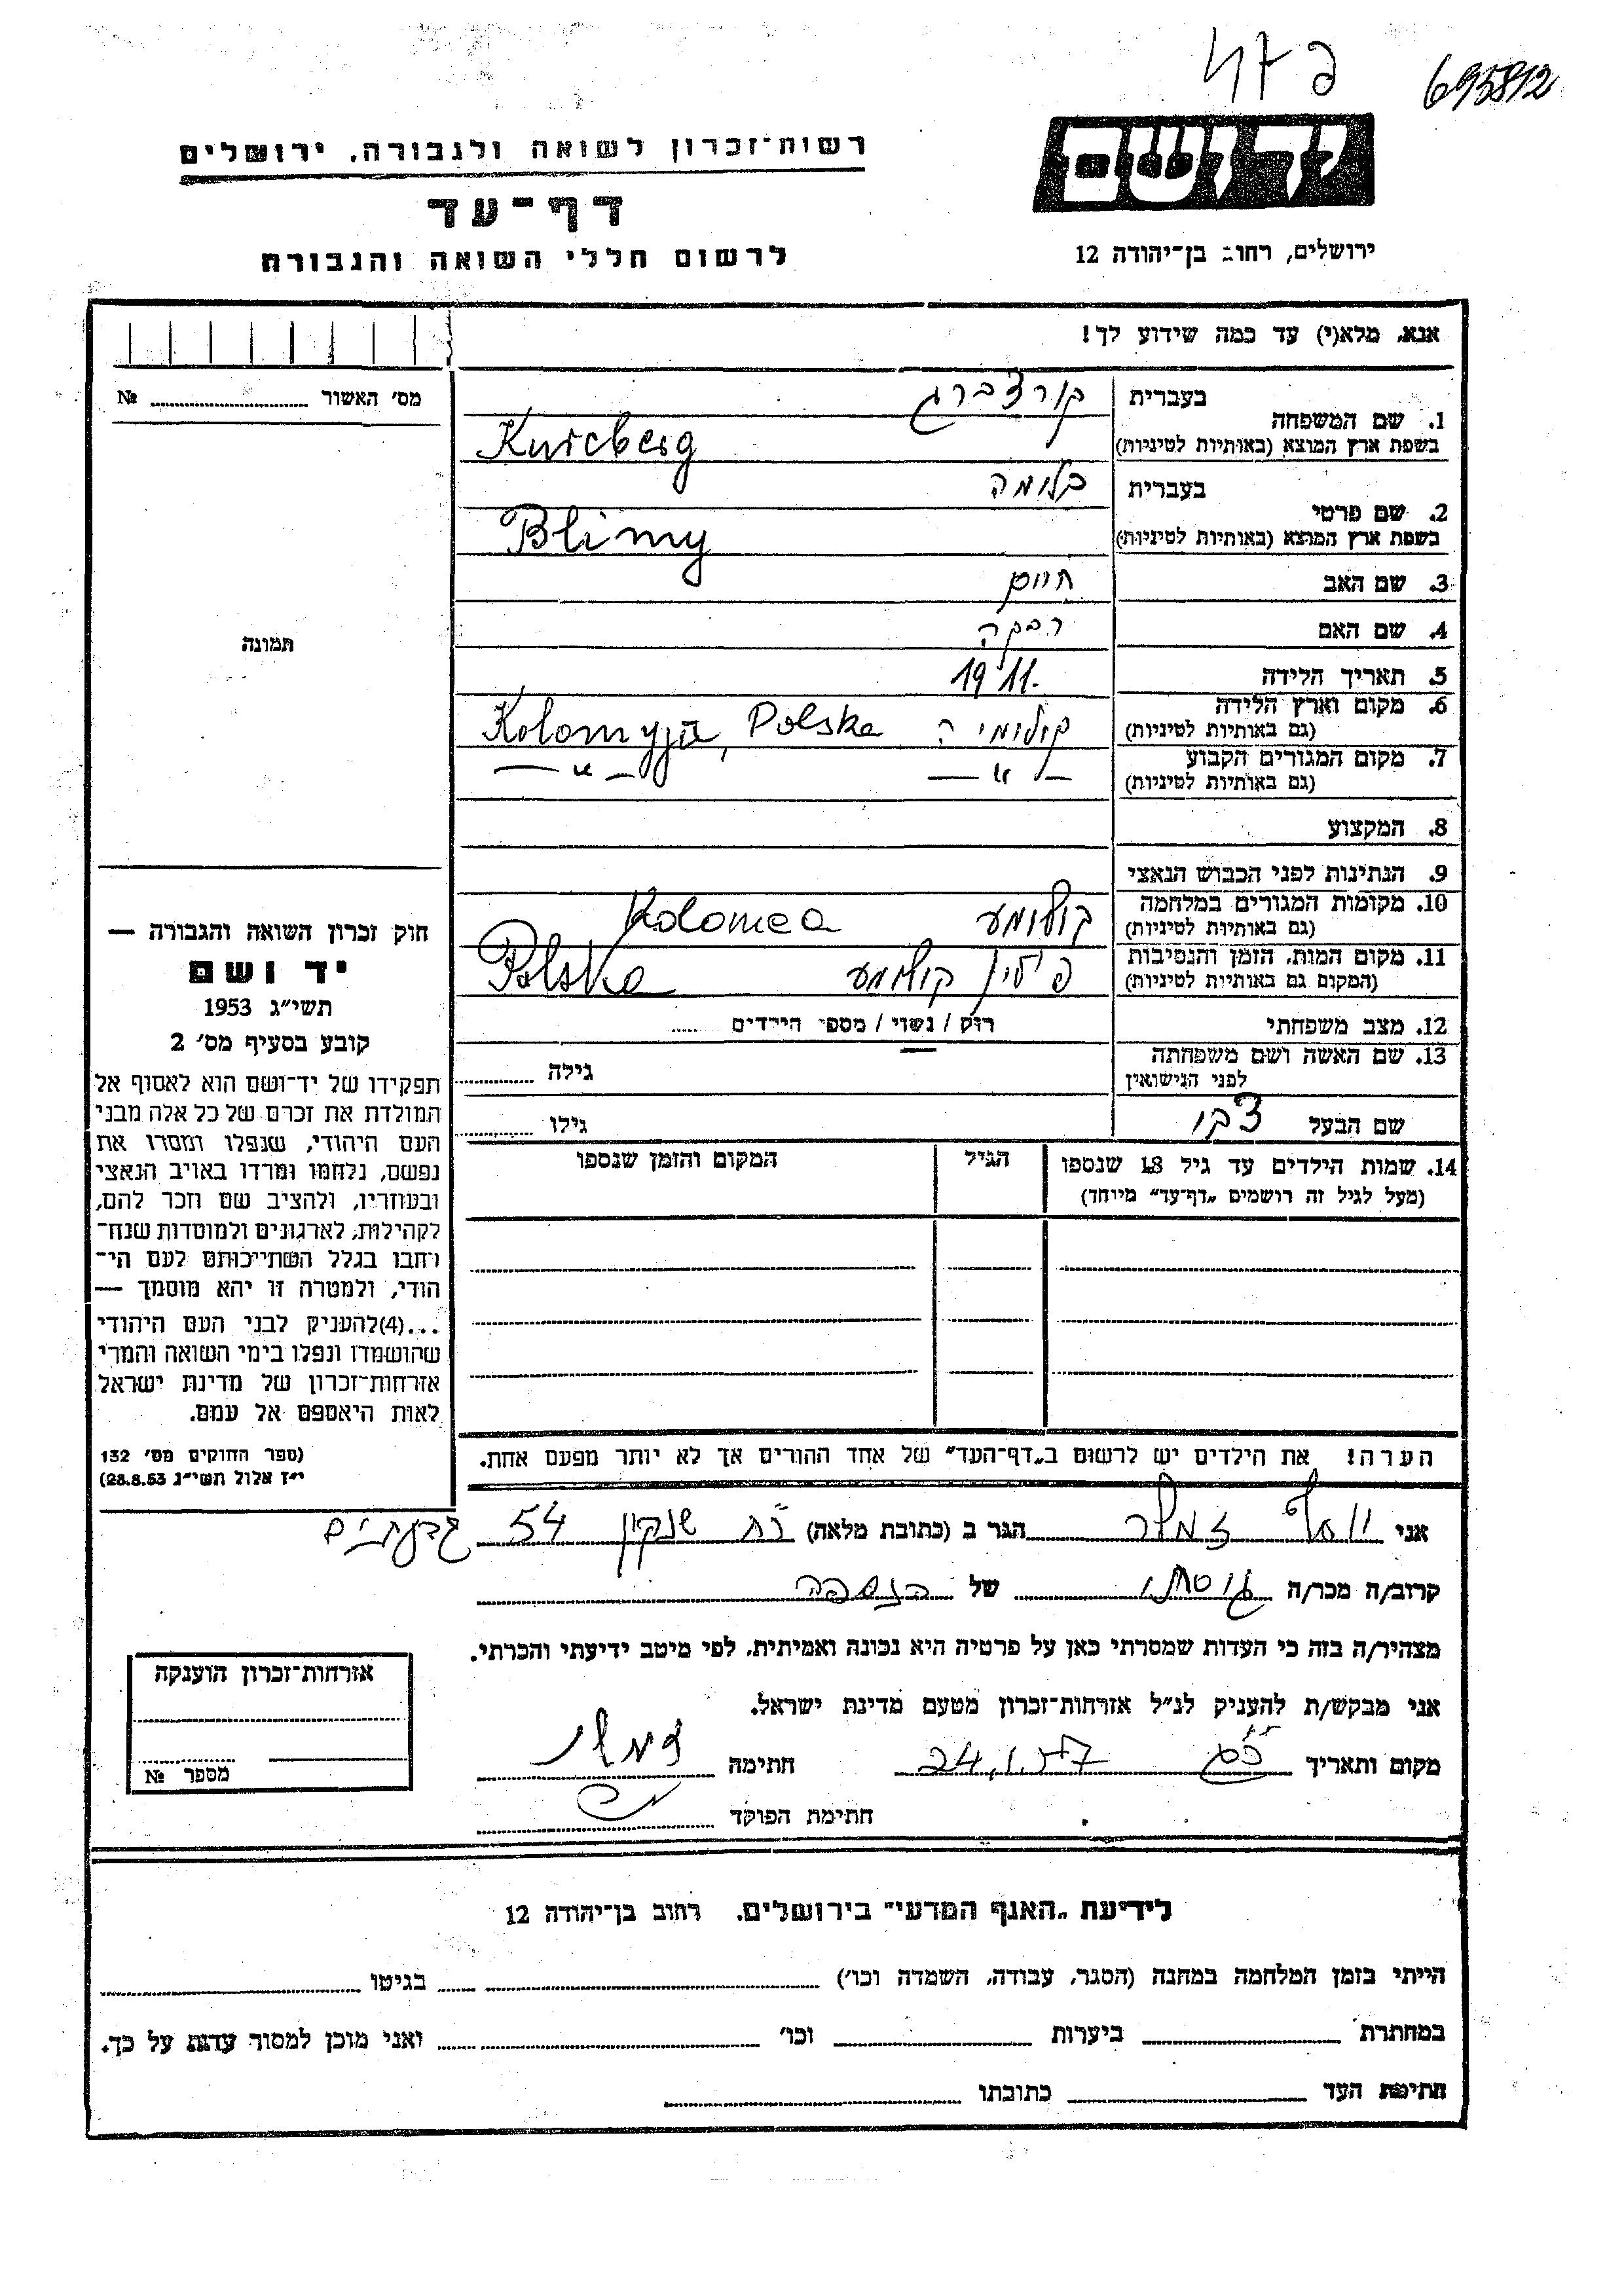 695812
רשות־זכרון לשואה ולגבורה, ירושלים
דף־עד
לרשום חללי השואה והגבורה
ידושם
ירושלים, רחוב בן־יהודה 12
אנא, מלא(י) עד כמה שידוע לך!
מס׳ האשור № 
1. שם המשפחה
בעברית קורצברג
בשפת ארץ המוצא (באותיות לטיניות) Kurcberg
2. שם פרטי
בעברית בלומה
בשפת ארץ המוצא (באותיות לטיניות) Blimy
3. שם האב חיים
4. שם האם רבקה
5. תאריך הלידה 1911.
6. מקום וארץ הלידה קולומיה Kolomyja, Polska
(גם באותיות לטיניות)
7. מקום המגורים הקבוע — " — — " —
(גם באותיות לטיניות)
8. המקצוע
9. הנתינות לפני הכבוש הנאצי
10. מקומות המגורים במלחמה קולומע Kolomea
(גם באותיות לטיניות)
11. מקום המות, הזמן והנסיבות פולין קולומע Polska
(המקום גם באותיות לטיניות)
12. מצב משפחתי רוק / נשוי / מספר הילדים
13. שם האשה ושם משפחתה
לפני הנישואין גילה
שם הבעל צבי גילו
14. שמות הילדים עד גיל 18 שנספו הגיל המקום והזמן שנספו
(מעל לגיל זה רושמים „דף־עד” מיוחד)
הערה! את הילדים יש לרשום ב„דף־העד” של אחד ההורים אך לא יותר מפעם אחת.
תמונה
חוק זכרון השואה והגבורה —
יד ושם
תשי״ג 1953
קובע בסעיף מס׳ 2
תפקידו של יד־ושם הוא לאסוף אל
המולדת את זכרם של כל אלה מבני
העם היהודי, שנפלו ומסרו את
נפשם, נלחמו ומרדו באויב הנאצי
ובעוזריו, ולהציב שם וזכר להם,
לקהילות, לארגונים ולמוסדות שנח־
רחבו בגלל השתייכותם לעם הי־
הודי, ולמטרה זו יהא מוסמך —
...(4)להעניק לבני העם היהודי
שהושמדו ונפלו בימי השואה והמרי
אזרחות־זכרון של מדינת ישראל
לאות היאספם אל עמם.
(ספר החוקים מס׳ 132
י״ז אלול תשי״ג 28.8.53)
אני יוסף זמלר הגר ב (כתובת מלאה) רח שנקין 54 גבעתיים
קרוב/ה מכר/ה גיסתי של הנספה
מצהיר/ה בזה כי העדות שמסרתי כאן על פרטיה היא נכונה ואמיתית, לפי מיטב ידיעתי והכרתי.
אני מבקש/ת להעניק לנ״ל אזרחות־זכרון מטעם מדינת ישראל.
מקום ותאריך 24.1.57 חתימה זמלר
חתימת הפוקד
אזרחות־זכרון הוענקה
מספר №
לידיעת „האגף המדעי” בירושלים, רחוב בן־יהודה 12
הייתי בזמן המלחמה במחנה (הסגר, עבודה, השמדה וכו׳) בגיטו
במחתרת ביערות וכו׳ ואני מוכן למסור עדות על כך.
חתימת העד כתובתו